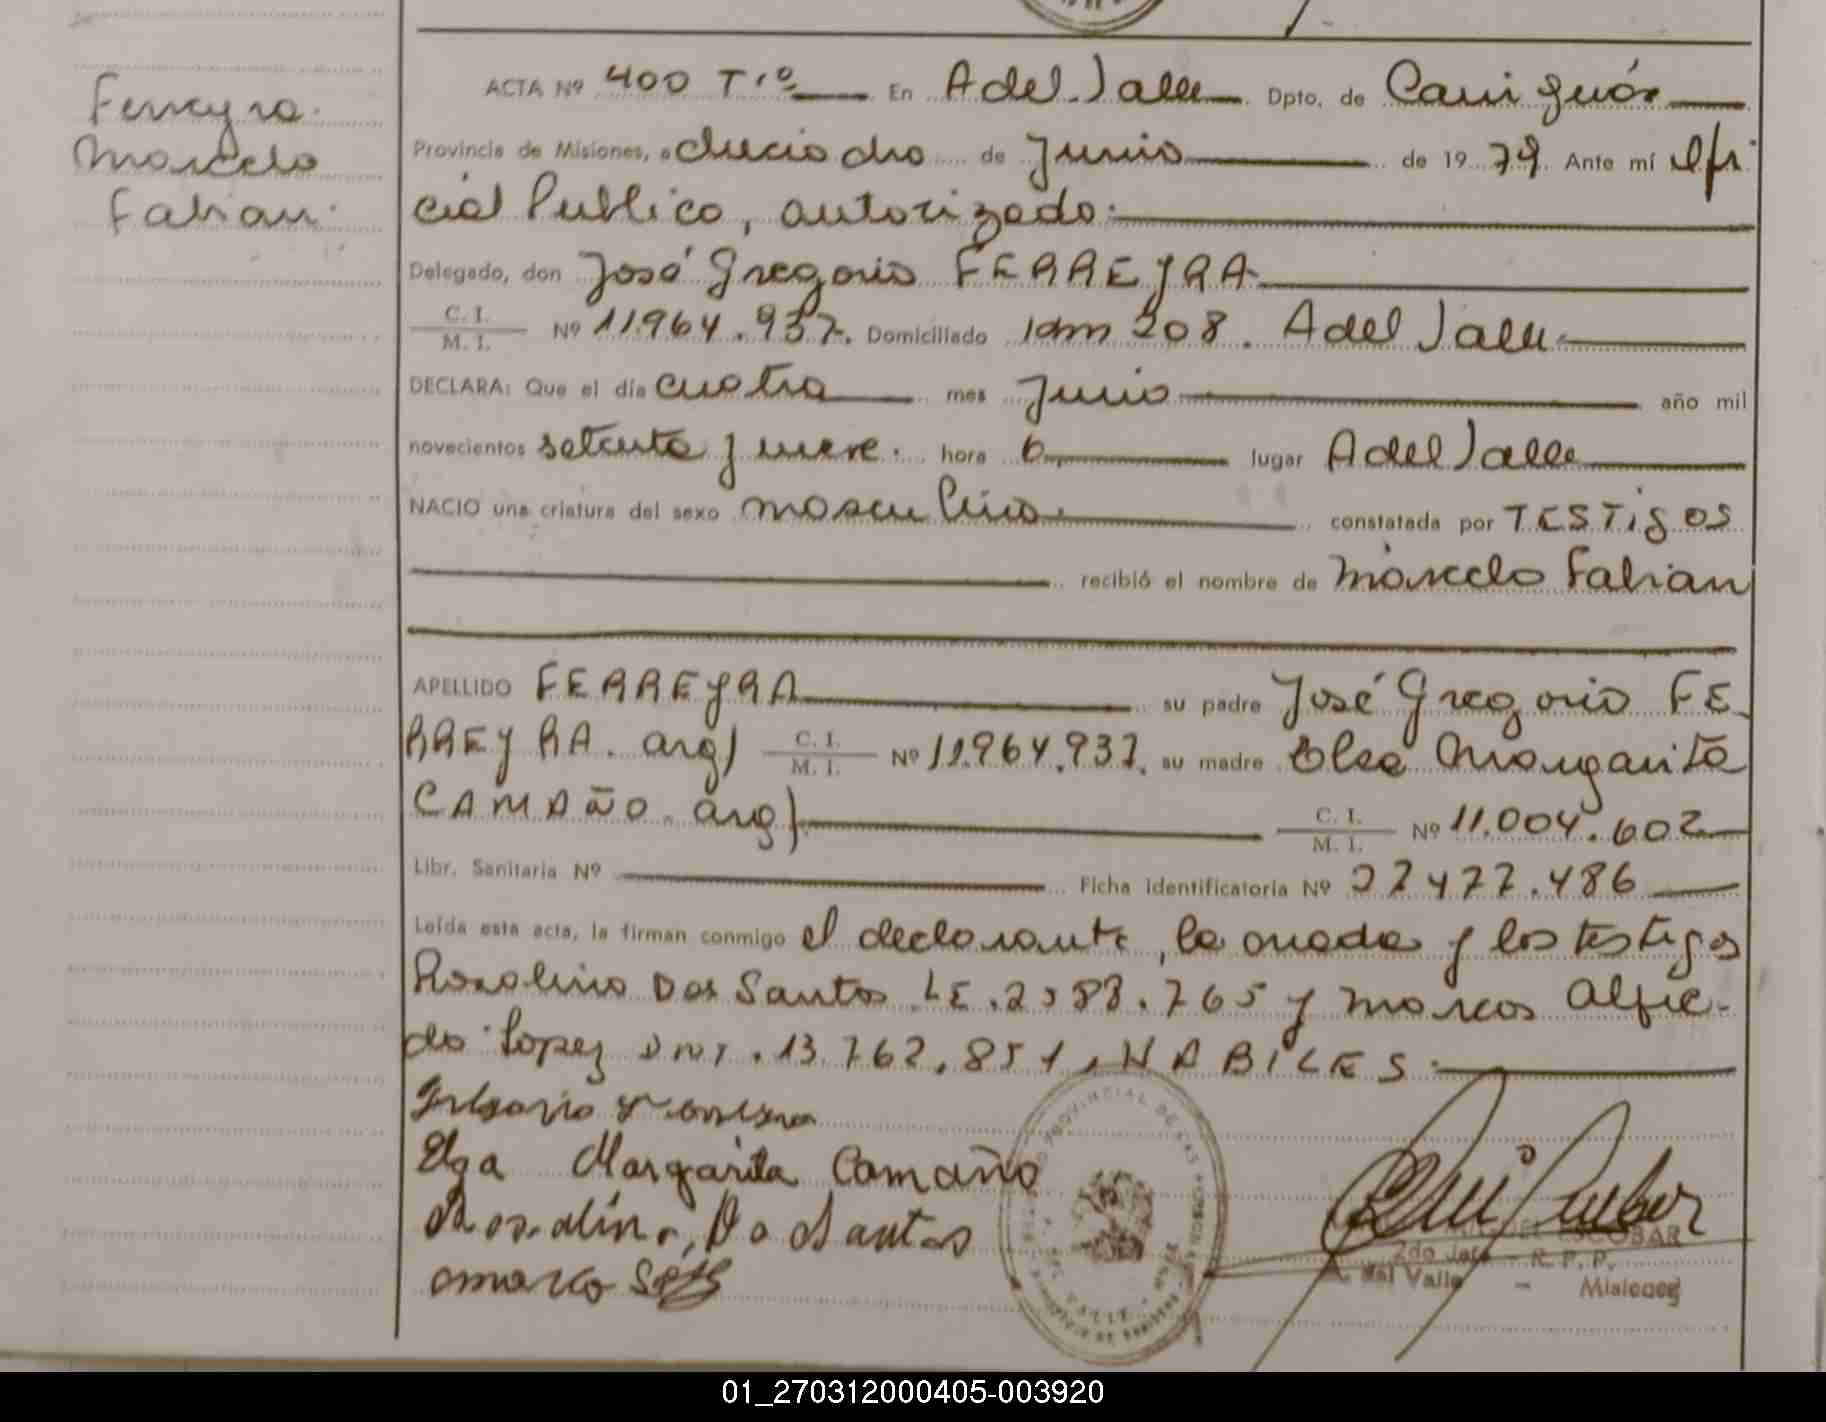 Ferreyra.
Marcelo
Fabian.
ACTA Nº 400 Tº En A del Valle Dpto. de Cainguás
Provincia de Misiones, a dieciocho de Junio de 19 79. Ante mí Ofi
cial Publico, autorizado.
Delegado, don José Gregorio FERREYRA
C. I. / M. I. Nº 11.964.937. Domiciliado km 208. A del Valle
DECLARA: Que el día cuatro mes Junio año mil
novecientos setenta y nueve. hora 6 lugar A del Valle
NACIO una criatura del sexo masculino. constatada por TESTigos
recibió el nombre de Marcelo Fabian
APELLIDO FERREyRA su padre José Gregorio FE-
RREyRA. arg) C. I. / M. I. Nº 11.964.937. su madre Elga Margarita
CAMAÑO. arg) C. I. / M. I. Nº 11.004.602
Libr. Sanitaria Nº Ficha Identificatoria Nº 27477.486
Leída esta acta, la firman conmigo el declarante, la madre y los testigos
Rosalino Dos Santos LE. 2588.765 y Marcos Alfre-
do Lopez DNI. 13.762.851, HABILES.
Gregorio Ferreyra
Elga Margarita Camaño
Rosalino, Do Santos
ESCOBAR
2do Jefe - R. P. P.
A. del Valle - Misiones
01_270312000405-003920